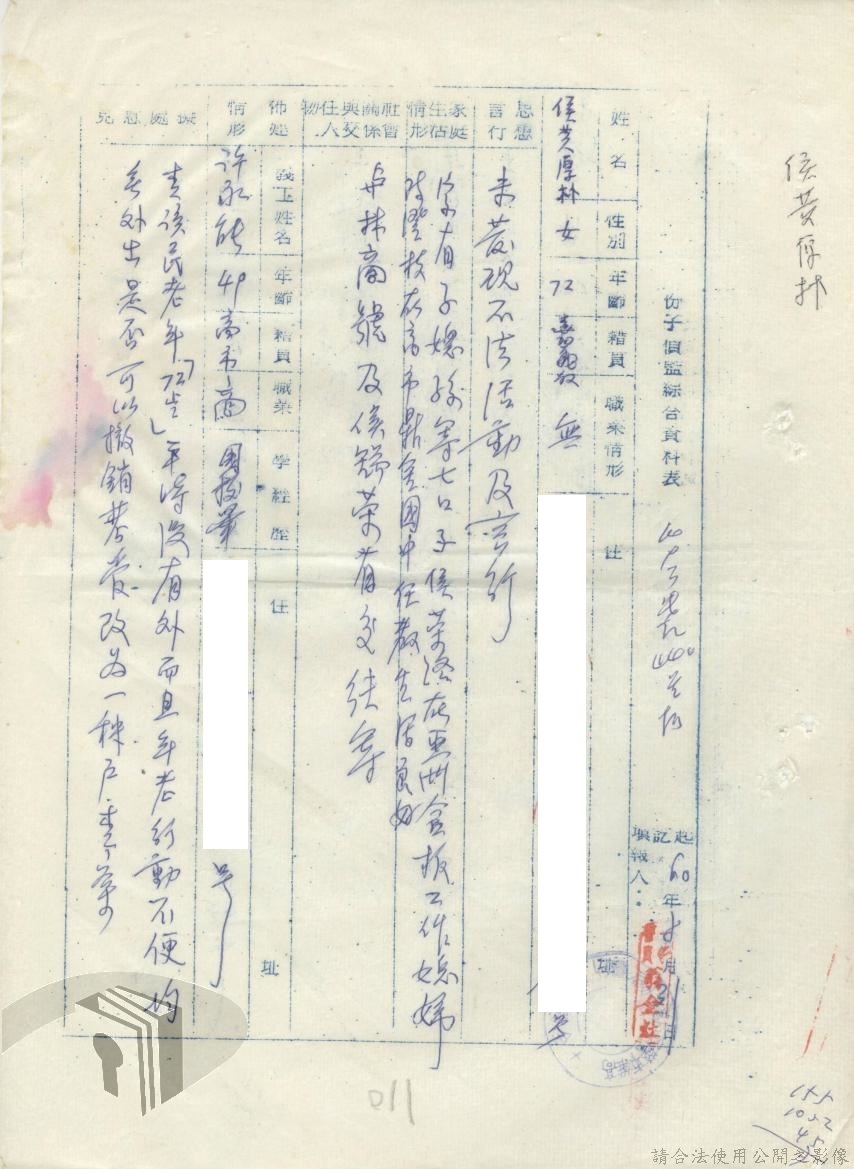 侯黃厚朴
份子偵監綜合資料表
起記 60年 月 日
填報人：
警員
姓名 侯黃厚朴
性別 女
年齡 72
籍貫 嘉義
職業情形 無
住 址 号
思想言行 未發現不法活動及言行
家庭生活情形 家有子媳孫等七口子侯榮 在亞洲合板工作媳婦
陳 枝在高市鼎金國中任教生活良好
社會關係與交往人物
與林商號及侯 榮有交往等
佈建情形
義工姓名 許 能
年齡 49
籍貫 高市
職業 商
學經歷 國校畢
住 号 址
擬處意見 查該民老年「72岁」平時沒有外而且年老行動不便均
無外出是否可以撤銷 改為一種戶 查
110
155
1052
45
請合法使用公開之影像